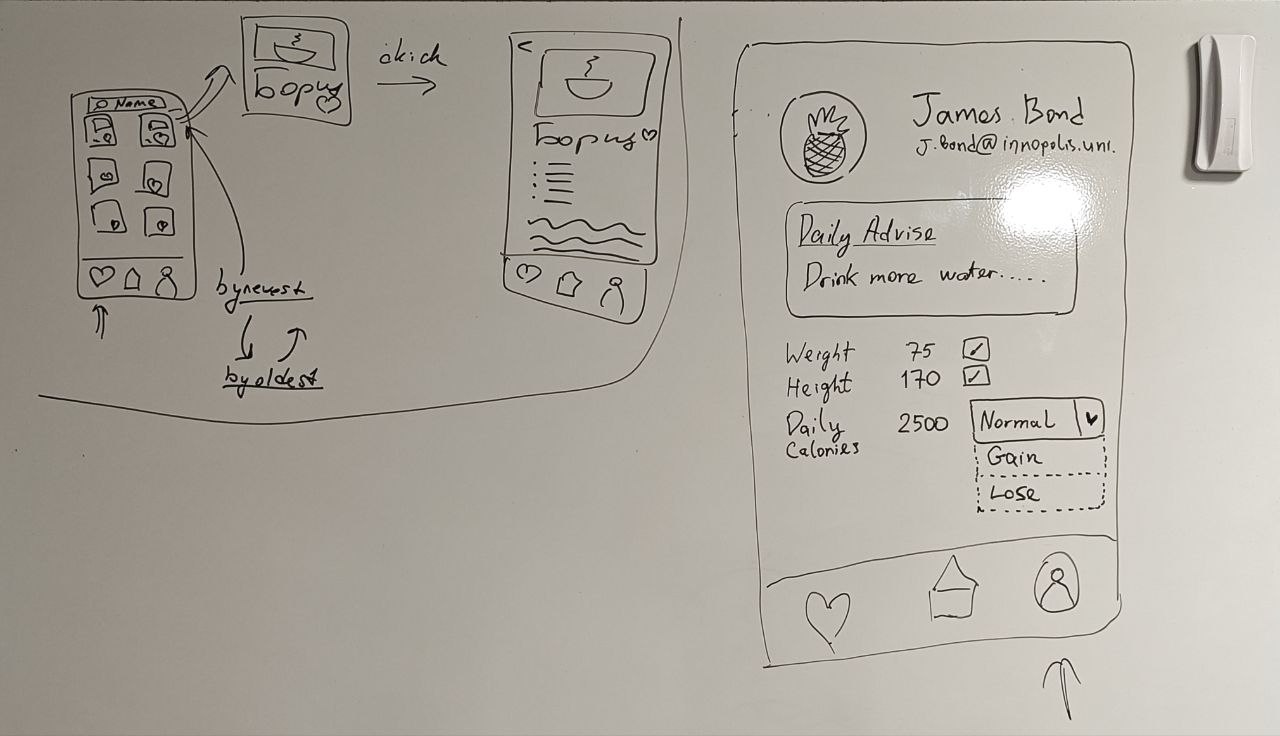 Name
борщ
click
борщ
by newest
by oldest
James Bond
J.Bond@innopolis.uni.
Daily Advise
Drink more water.....
Weight 75
Height 170
Daily 2500 Normal
Calories
Gain
Lose